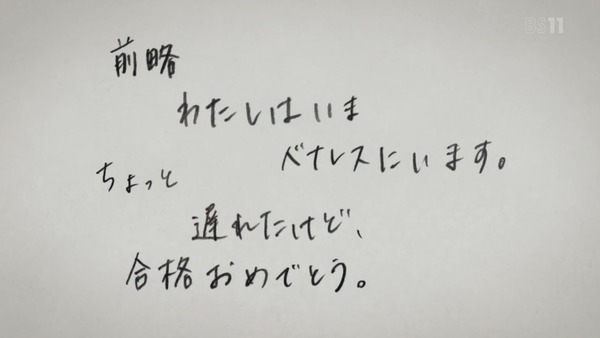 BS11
前略
わたしはいま
ベナレスにいます。
ちょっと
遅れたけど、
合格おめでとう。